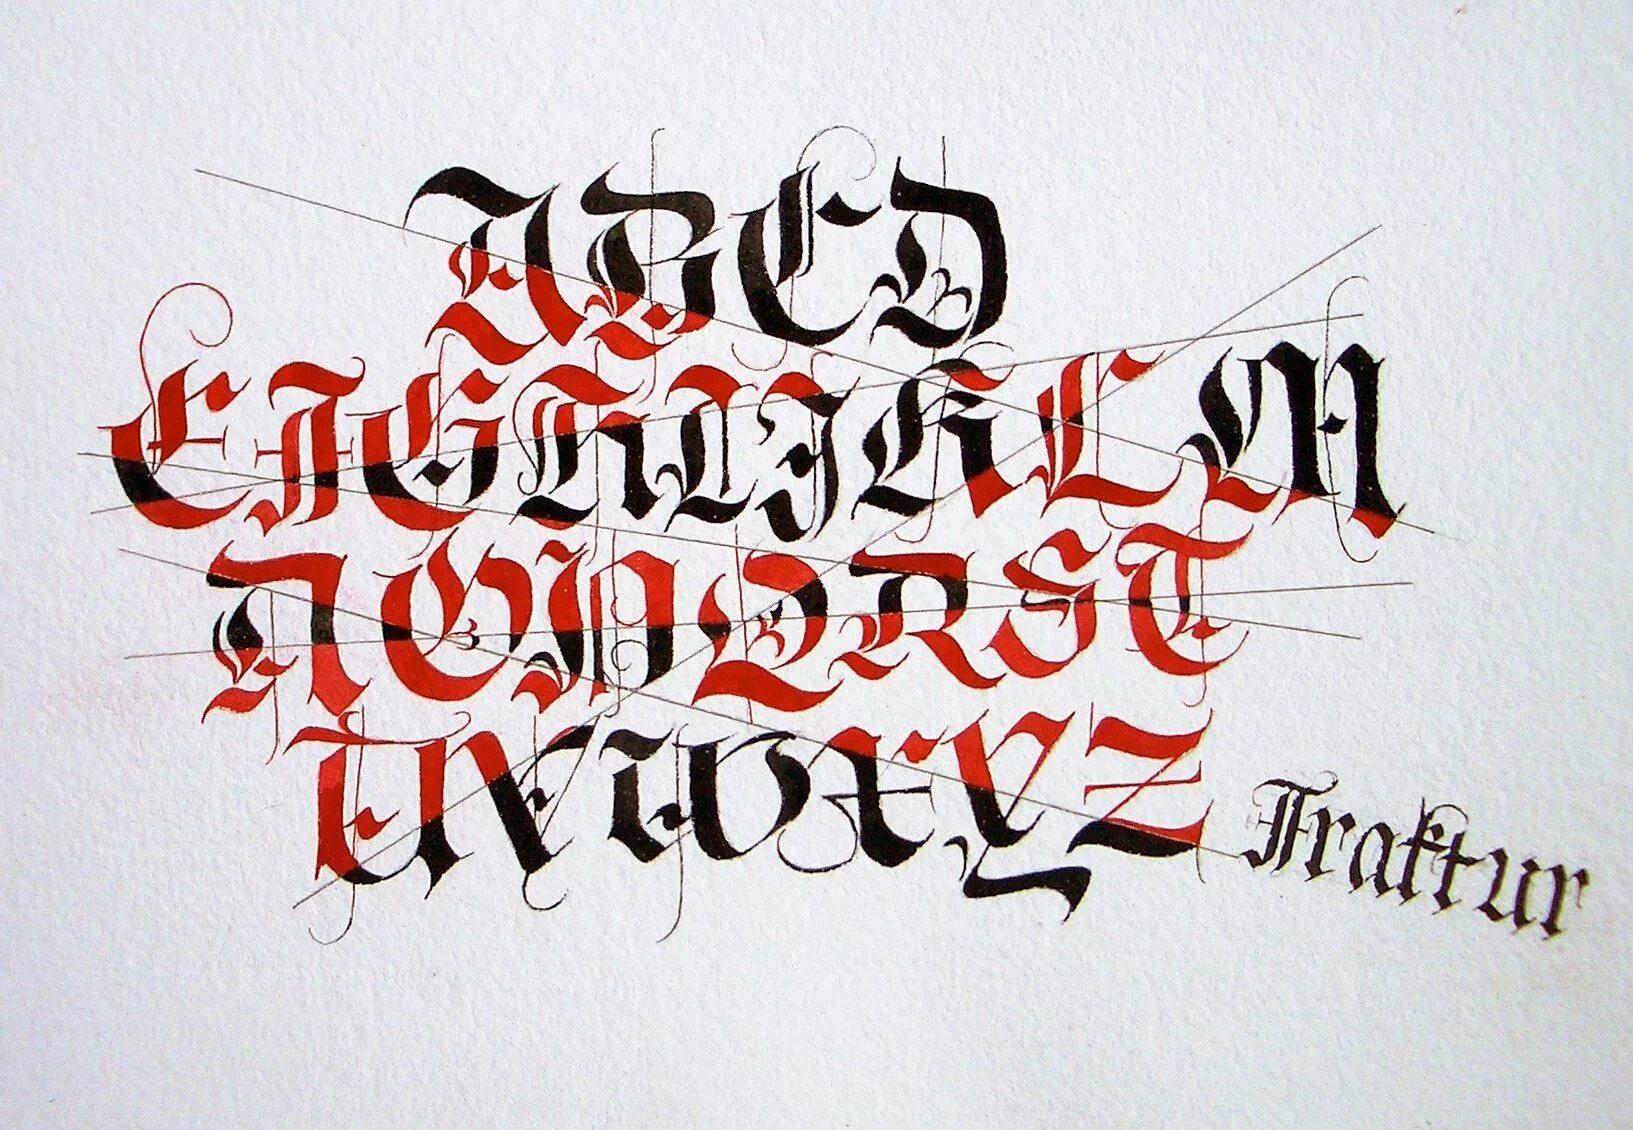 ABCD
EFGHIJKLM
NOPQRST
UVWXYZ
Fraktur